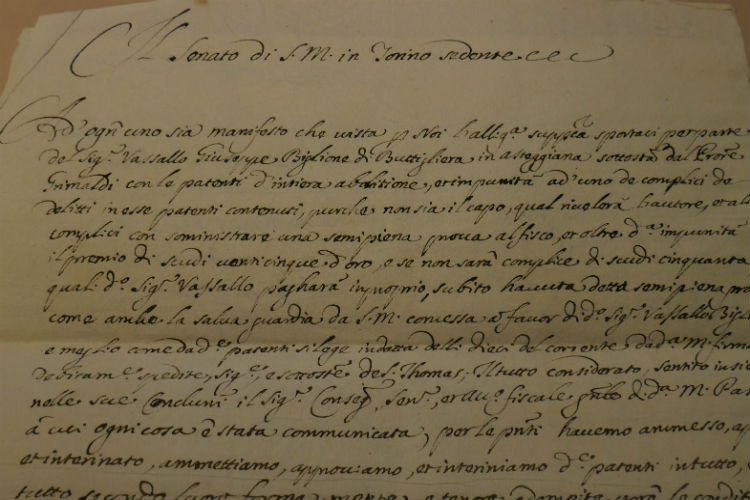 Il Senato di S. M. in Torino sedente e e e
Ad' ogn' uno sia manifesto che uista p Noi l'alligᵃ suppᶜᵃ sportaci per parte
del Sigʳ Vassallo Giuseppe Biglione di Buttigliera in asteggiana sottostᵃ da
Grimaldi con le patenti d'intiera abolitione, et impunità ad' uno de complici de
delitti in esse patenti contenuti, purche non sia il capo, qual riuelerà l'autore, et al
complici con soministrare una semipiena proua al fisco, et oltre dᵃ impunità
il premio di scudi uenticinque d'oro, e se non sarà complice di scudi cinquanta
quali dᵒ Sigʳ Vassallo pagharà in proprio, subito hauuta detta semipiena pro
come anche la salua guardia da S. M. concessa a fauor di dᵒ Sigʳ Vassallo Bigl
e meglio come da dᵉ patenti si lege in data delli dieci del corrente da dᵃ M. firma
spedite, sigᵉ, e sottosᵗᵉ de S. Thomas; Il tutto considerato, sentito
nelle sue Conclunⁱ il Sigʳ Consegʳ, Senʳ, et Auᵒ fiscale gnle di dᵃ M. Pa
à cui ogni cosa è stata communicata, per le pnti hauemo ammesso, ap
et interinato, ammettiamo, approuiamo, et interiniamo dᵉ patenti in tutto, e
tutto secondo loro forma, mente, e tenore